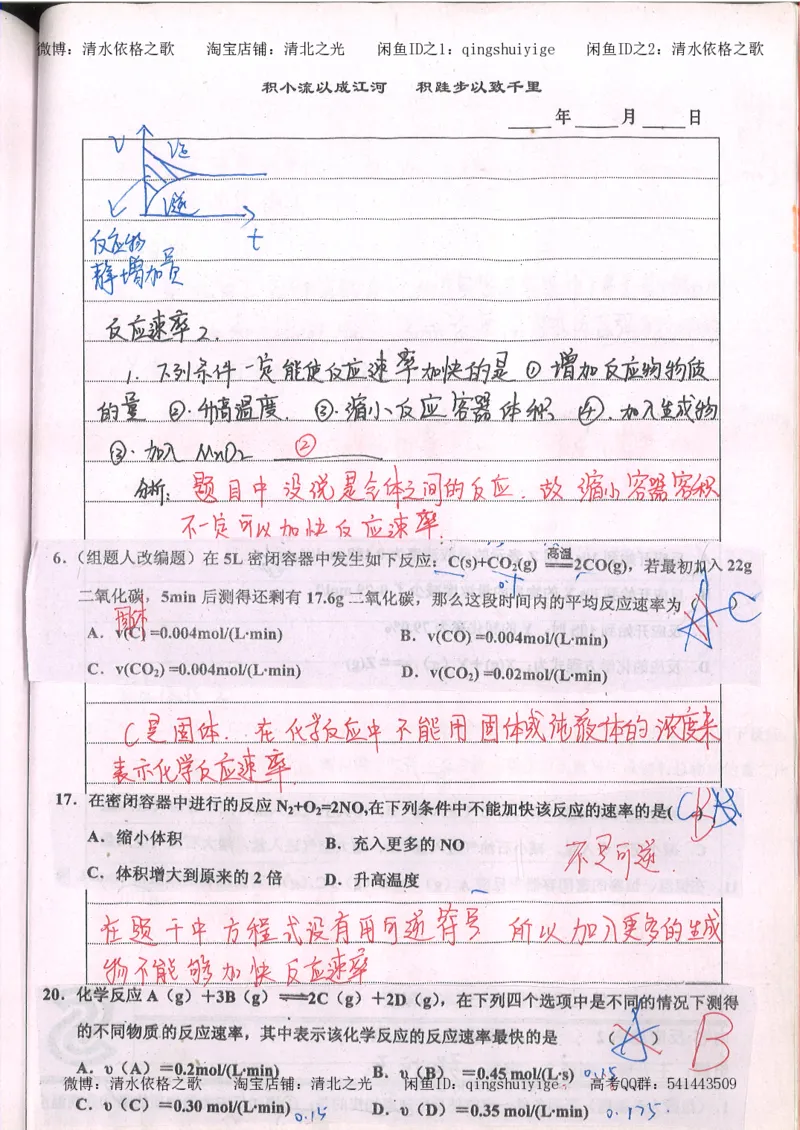 微博：清水依格之歌 淘宝店铺：清北之光 闲鱼ID之1：qingshuiyige 闲鱼ID之2：清水依格之歌
积小流以成江河 积跬步以致千里
年 月 日
V
V正
V逆
t
反应物
静增加员
反应速率2.
1. 下列条件一定能使反应速率加快的是 ① 增加反应物物质
的量 ②·升高温度. ③·缩小反应容器体积 ④. 加入生成物
③·加入 MnO2 ②
分析: 题目中没说是气体之间的反应. 故 缩小容器容积
不一定可以加快反应速率.
6.（组题人改编题）在 5L 密闭容器中发生如下反应：C(s)+CO₂(g) 高温══2CO(g)，若最初加入 22g
0.1
二氧化碳，5min 后测得还剩有 17.6g 二氧化碳，那么这段时间内的平均反应速率为（A）C
固体
A．v(C) =0.004mol/(L·min) B．v(CO) =0.004mol/(L·min)
C．v(CO₂) =0.004mol/(L·min) D．v(CO₂) =0.02mol/(L·min)
C是固体. 在化学反应中不能用固体或纯液体的浓度来
表示化学反应速率
17．在密闭容器中进行的反应 N₂+O₂=2NO,在下列条件中不能加快该反应的速率的是( C B
A．缩小体积 B．充入更多的 NO 不是可逆.
C．体积增大到原来的 2 倍 D．升高温度
在题干中方程式没有用可逆符号 所以加入更多的生成
物不能够加快反应速率
20．化学反应 A（g）＋3B（g）⇌2C（g）＋2D（g），在下列四个选项中是不同的情况下测得
的不同物质的反应速率，其中表示该化学反应的反应速率最快的是 （A） B
A．υ（A）＝0.2mol/(L·min) B．υ（B）＝0.45 mol/(L·s) 0.15
微博：清水依格之歌 淘宝店铺：清北之光 闲鱼ID：qingshuiyige 高考QQ群：541443509
C．υ（C）＝0.30 mol/(L·min) 0.15 D．υ（D）＝0.35 mol/(L·min) 0.175.